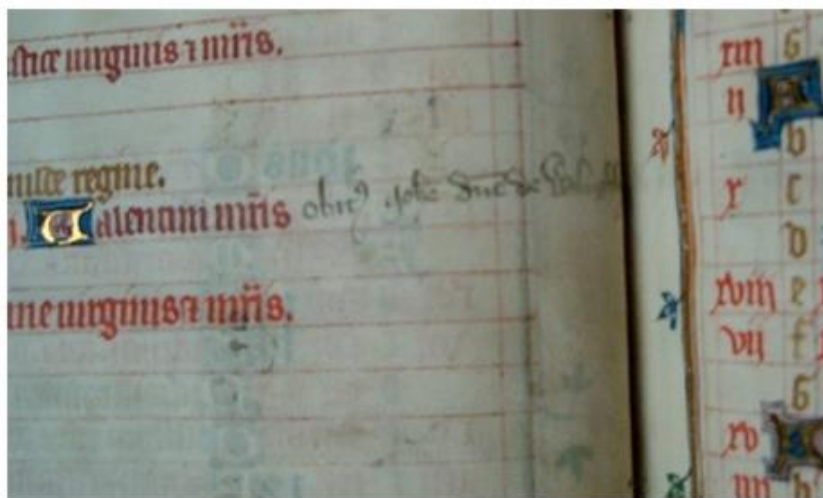 stice uirginis ⁊ mr̄is.
nilde regine.
Ualentini mr̄is obiit
ane uirginis ⁊ mr̄is.
xiii G
ii A
b
x c
d
xviii e
vii f
G
xv A
iiii b